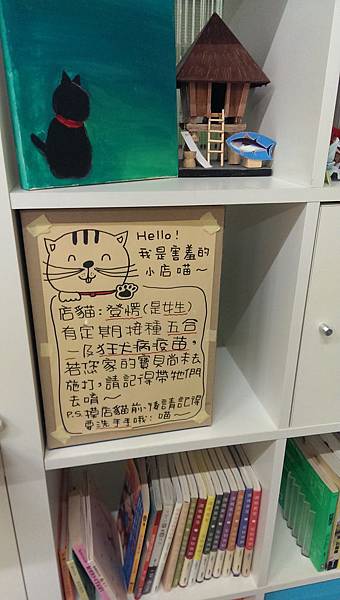 Hello!
我是害羞的
小店喵～
店貓：登愣(是女生)
有定期接種五合
一及狂犬病疫苗，
若您家的寶貝尚未去
施打，請記得帶牠們
去唷～
P.S.摸店貓前、後請記得
要洗手手哦：喵～